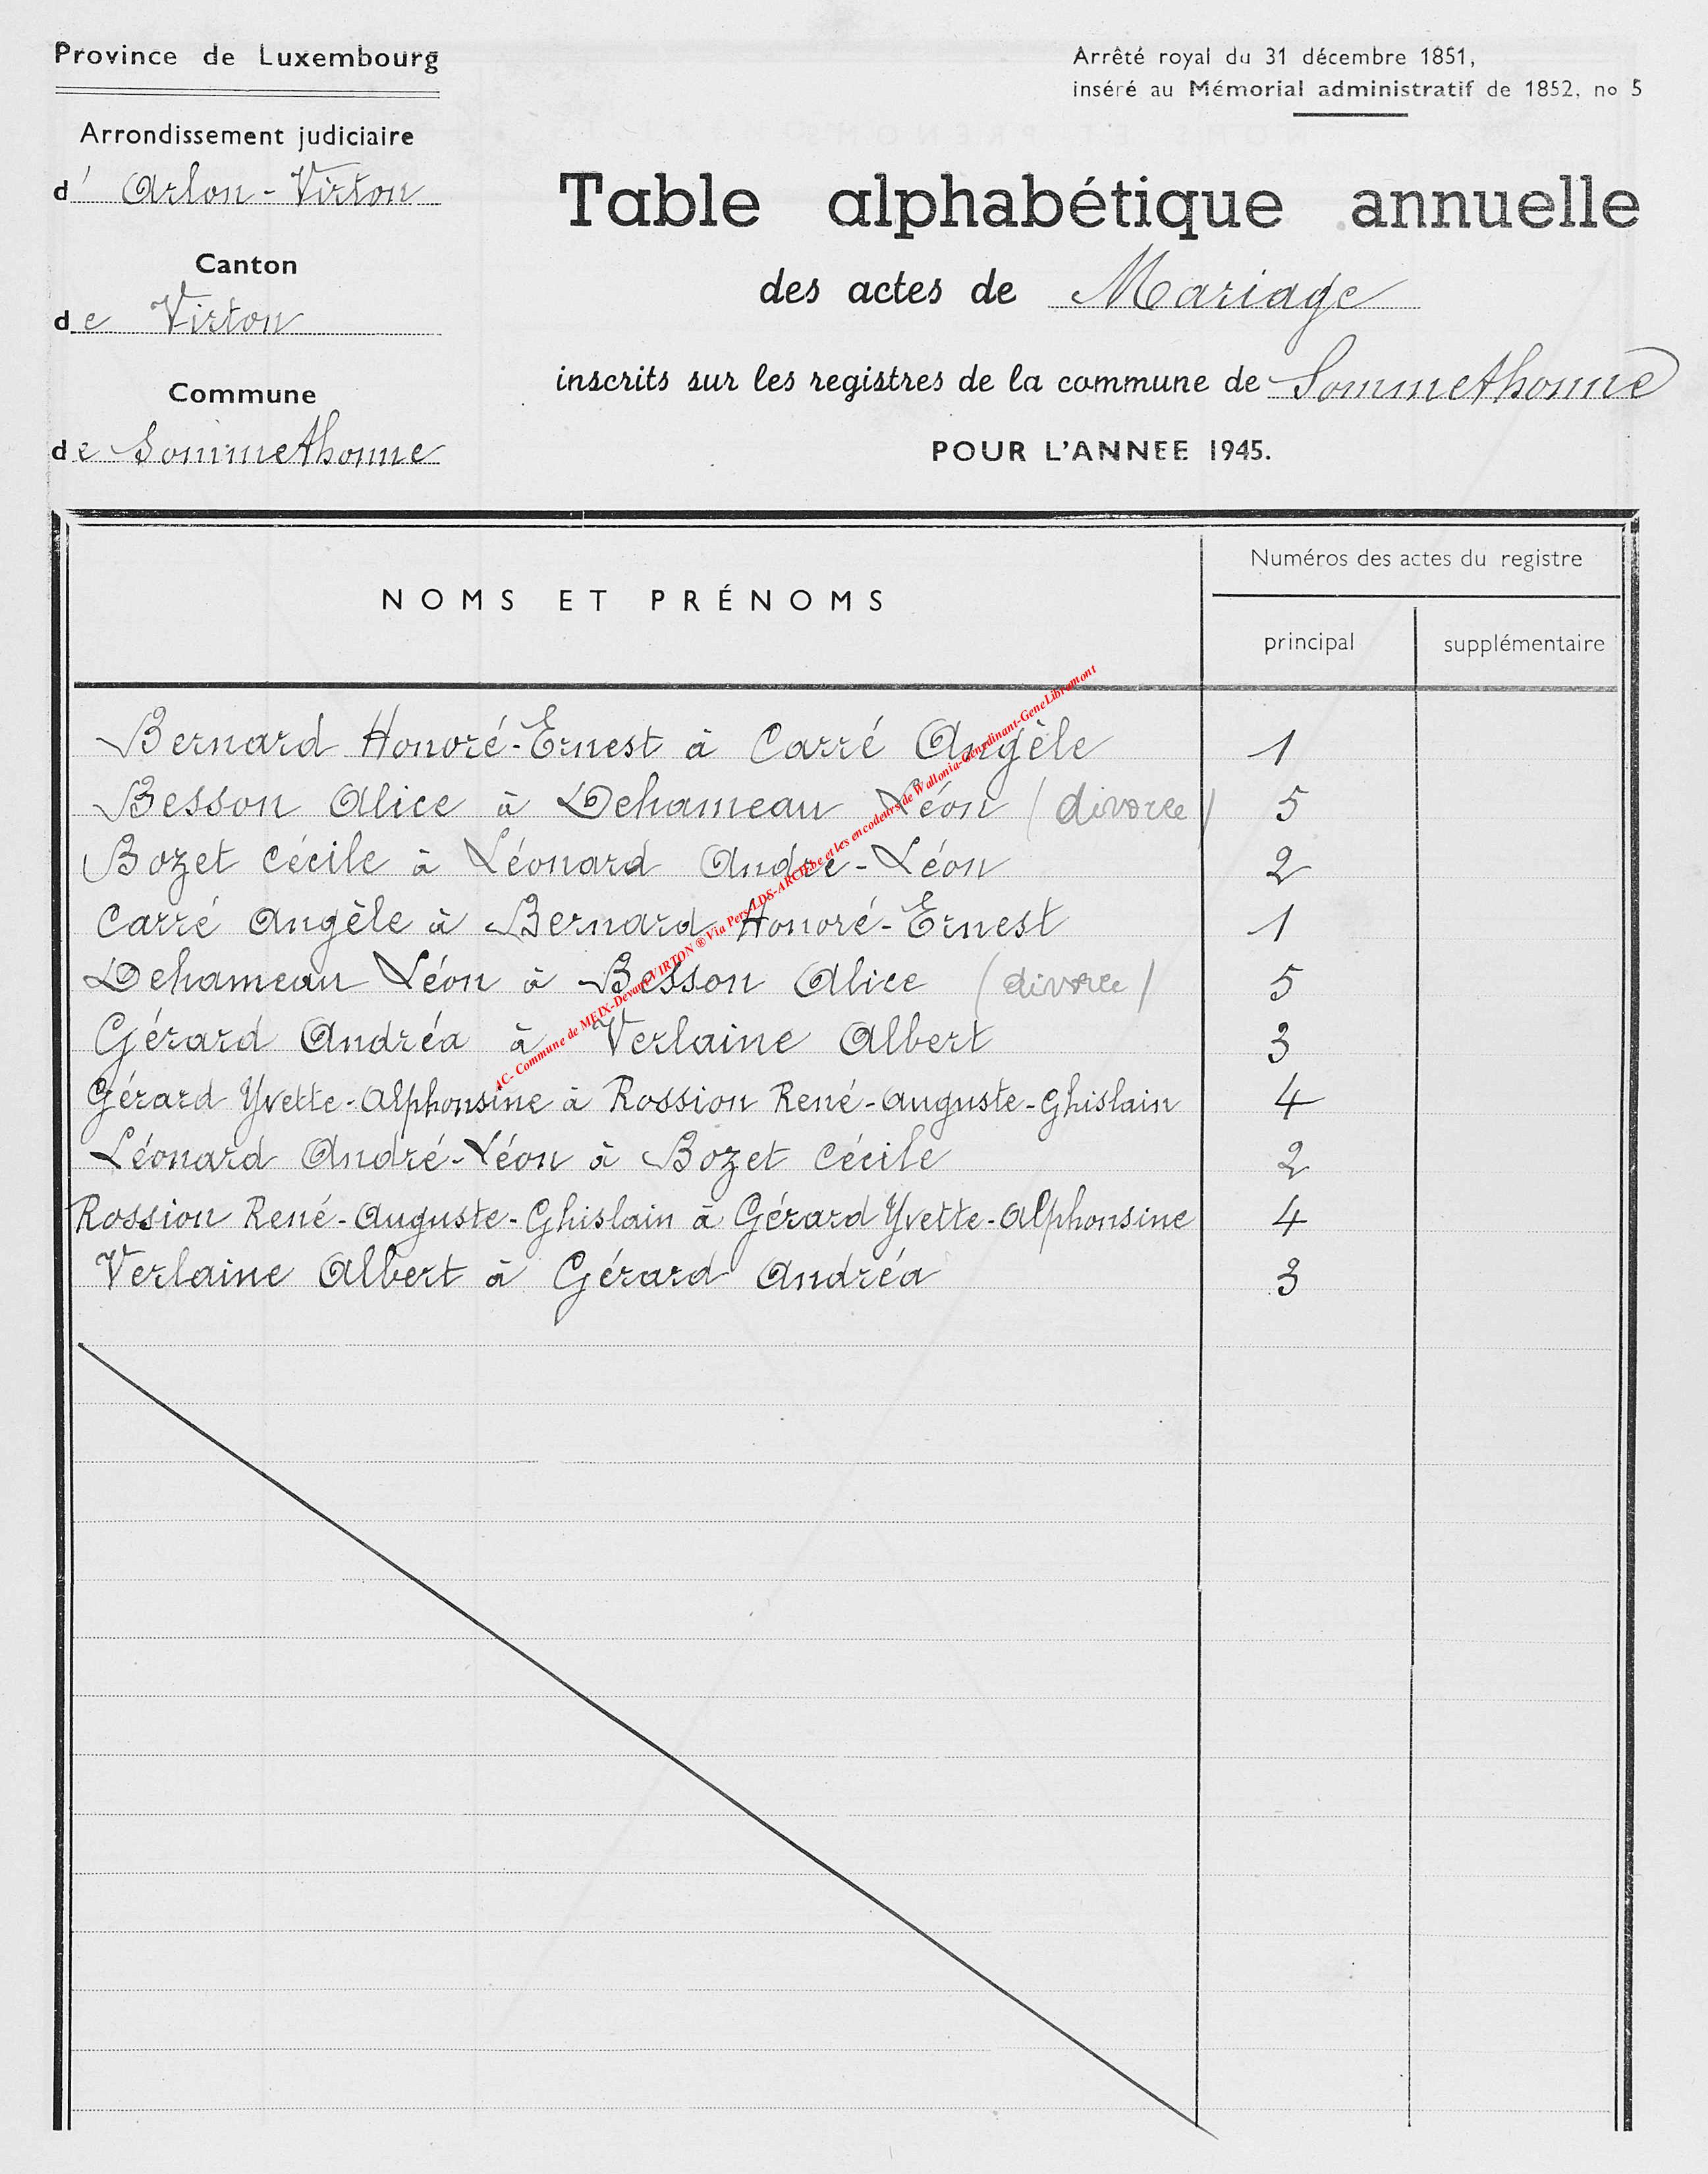 Province de Luxembourg
Arrondissement judiciaire
d' Arlon-Virton
Canton
de Virton
Commune
de Sommethonne
Arrêté royal du 31 décembre 1851,
inséré au Mémorial administratif de 1852, no 5
Table alphabétique annuelle
des actes de Mariage
inscrits sur les registres de la commune de Sommethonne
POUR L'ANNEE 1945.
NOMS ET PRÉNOMS
Numéros des actes du registre
principal supplémentaire
Bernard Honoré-Ernest à Carré Angèle 1
Besson Alice à Dehameau Léon (divorce) 5
Bozet Cécile à Léonard André-Léon 2
Carré Angèle à Bernard Honoré-Ernest 1
Dehameau Léon à Besson Alice (divorce) 5
Gérard Andréa à Verlaine Albert 3
Gérard Yvette-Alphonsine à Rossion René-Auguste-Ghislain 4
Léonard André-Léon à Bozet Cécile 2
Rossion René-Auguste-Ghislain à Gérard Yvette-Alphonsine 4
Verlaine Albert à Gérard Andréa 3
AC- Commune de MEIX-Devant-VIRTON ® Via Pers-LDS-ARCH.be et les encodeurs de Wallonia-Genedinant-GeneLibramont